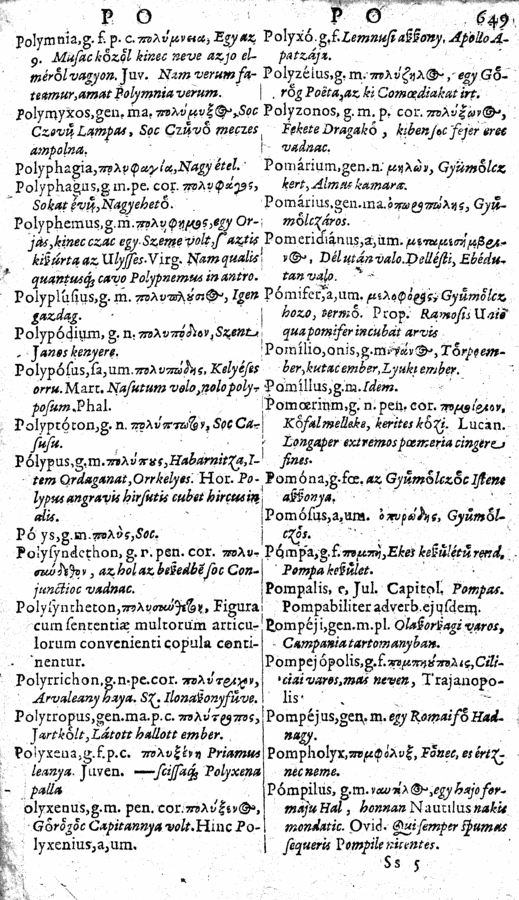 P O
P O 649
Polymnia, g. f. p. c. πολύμνεια, Egy az
9. Musac kôzôl kinec neve azjo el-
mérôl vagyon. Juv. Nam verum fa-
teamur, amat Polymnia verum.
Polymyxos, gen. ma. πολύμυξος, Soc
Czovû Lampas, Soc Czûvô meczes
ampolna.
Polyphagia, πολυφαγία, Nagy étel.
Polyphagus, g m. pe. cor. πολυφάγος,
Sokat évû, Nagyehetô.
Polyphemus, g. m. πολυφημος, egy Or-
jás, kinec czac egy Szeme volt, s' aztis
kiſsúrta az Ulysses. Virg. Nam qualis
quantusq; cavo Polypnemus in antro.
Polyplúsius, g. m. πολυπλούσιος, Igen
gazdag.
Polypódium, g. n. πολυπόδιον, Szent
Janos kenyere.
Polypósus, sa, um. πολυπώδης, Kelyéses
orru. Mart. Nasutum volo, nolo poly-
posum. Phal.
Polyptóton, g. n. πολύπτωτον, Soc Ca-
susu.
Pólypus, g. m. πολύπους, Habarnitza, I-
tem Ordaganat, Orrkelyes. Hor. Po-
lypus angravis hirsutis cubet hircus in
alis.
Pó ys, g. m. πολὺς, Soc.
Polysyndethon, g. n. pen. cor. πολυ-
σύνδεθον, az hol az beſedbē soc Con-
junctioc vadnac.
Polysyntheton, πολυσύνθετον, Figura
cum sententiæ multorum articu-
lorum convenienti copula conti-
nentur.
Polytrichon, g. n. pe. cor. πολύτριχον,
Arvaleany haya. Sz. Ilonaſsonyfûve.
Polytropus, gen. ma. p. c. πολύτροπος,
Jartkôlt, Látott hallott ember.
Polyxena, g. f. p. c. πολυξένη Priamus
leanya. Juven. —scissaq; Polyxena
palla
olyxenus, g. m. pen. cor. πολύξενος,
Gôrôgôc Capitannya volt. Hinc Po-
lyxenius, a, um.
Polyxó, g. f. Lemnusi aſsony. Apollo A-
patzája.
Polyzéius, g. m. πολύζηλος, egy Gô-
rôg Pöeta, az ki Comœdiakat irt.
Polyzonos, g. m. p. cor. πολύζωνος,
Fekete Dragakô, kiben soc fejer erec
vadnac.
Pomárium, gen. n. μηλών, Gyûmôlcz
kert, Almas kamara.
Pomárius, gen. ma. ὀπωροπώλης, Gyû-
môlczáros.
Pomeridiánus, a, um. μεταμεσημβρι-
νος, Dél után valo. Dellésti, Ebédu-
tan valo.
Pómifer, a, um. μελοφόρος, Gyûmôlcz
hozo, termô. Prop. Ramosis
qua pomifer incubat arvis
Pomílio, onis, g. m. νάνος, Tôrpe em-
ber, kutac ember, Lyuki ember.
Pomíllus, g. m. Idem.
Pomœrium, g. n. pen. cor. πομοίριον,
Kôfal melleke, kerites kôzi. Lucan.
Longa per extremos pœmeria cingere
fines.
Pomóna, g. fœ. az Gyûmôlczôc Istene
aſsonya.
Pomósus, a, um. ὀπυρώδης, Gyûmôl-
czôs.
Pómpa, g. f. πομπὴ, Ekes keſsûlétû rend,
Pompa keſsûlet.
Pompalis, e, Jul. Capitol. Pompas.
Pompabiliter adverb. ejusdem.
Pompéji, gen. m. pl. Olaſsorſsagi varos,
Campania tartomanyban.
Pompejópolis, g. f. πομπηύπολις, Cili-
ciai varos, mas neven, Trajanopo-
lis
Pompéjus, gen. m. egy Romai fô Had-
nagy.
Pompholyx, πομφόλυξ, Fônec, es értz-
nec neme.
Pómpilus, g. m. ναυτίλος, egy hajo for-
maju Hal, honnan Nautilus nakis
mondatic. Ovid. Qui semper spumas
sequeris Pompile nitentes.
Ss 5